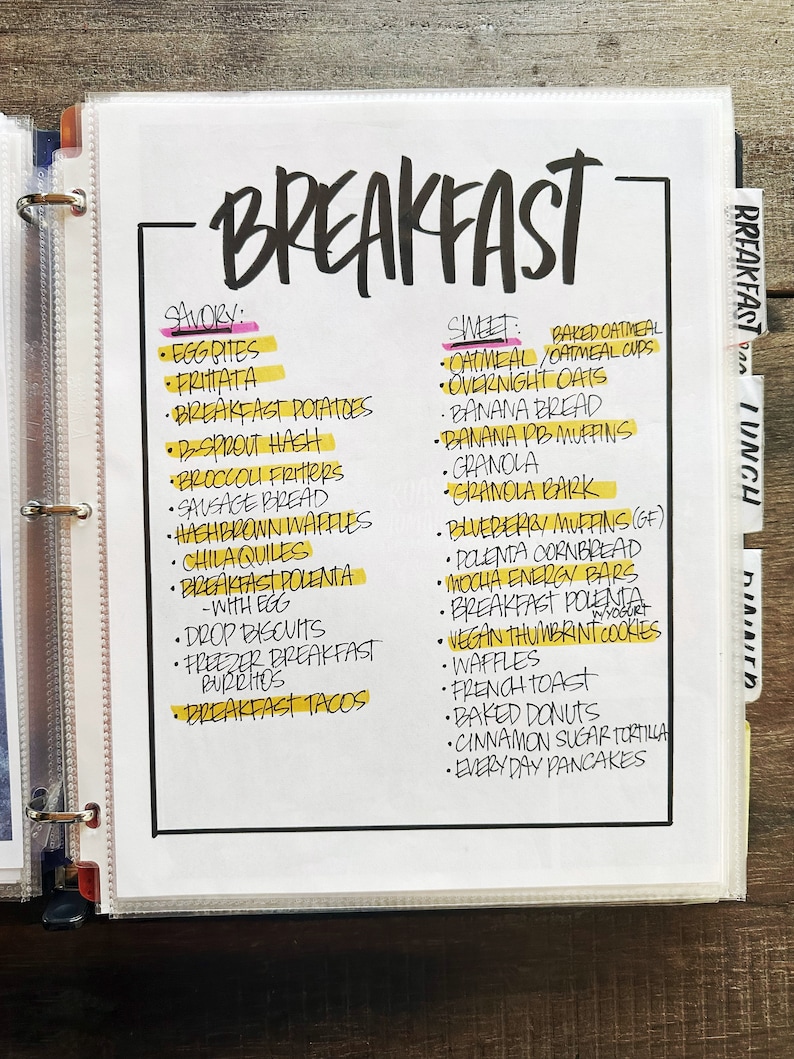 BREAKFAST
SAVORY:
• EGG BITES
• FRITTATA
• BREAKFAST POTATOES
• B. SPROUT HASH
• BROCCOLI FRITTERS
• SAUSAGE BREAD
• HASHBROWN WAFFLES
• CHILAQUILES
• BREAKFAST POLENTA
- WITH EGG
• DROP BISCUITS
• FREEZER BREAKFAST
BURRITOS
• BREAKFAST TACOS
SWEET:
BAKED OATMEAL
• OATMEAL / OATMEAL CUPS
• OVERNIGHT OATS
• BANANA BREAD
• BANANA PB MUFFINS
• GRANOLA
• GRANOLA BARK
• BLUEBERRY MUFFINS (GF)
• POLENTA CORNBREAD
• MOCHA ENERGY BARS
• BREAKFAST POLENTA
W/ YOGURT
• VEGAN THUMBPRINT COOKIES
• WAFFLES
• FRENCH TOAST
• BAKED DONUTS
• CINNAMON SUGAR TORTILLA
• EVERYDAY PANCAKES
BREAKFAST
LUNCH
DINNER